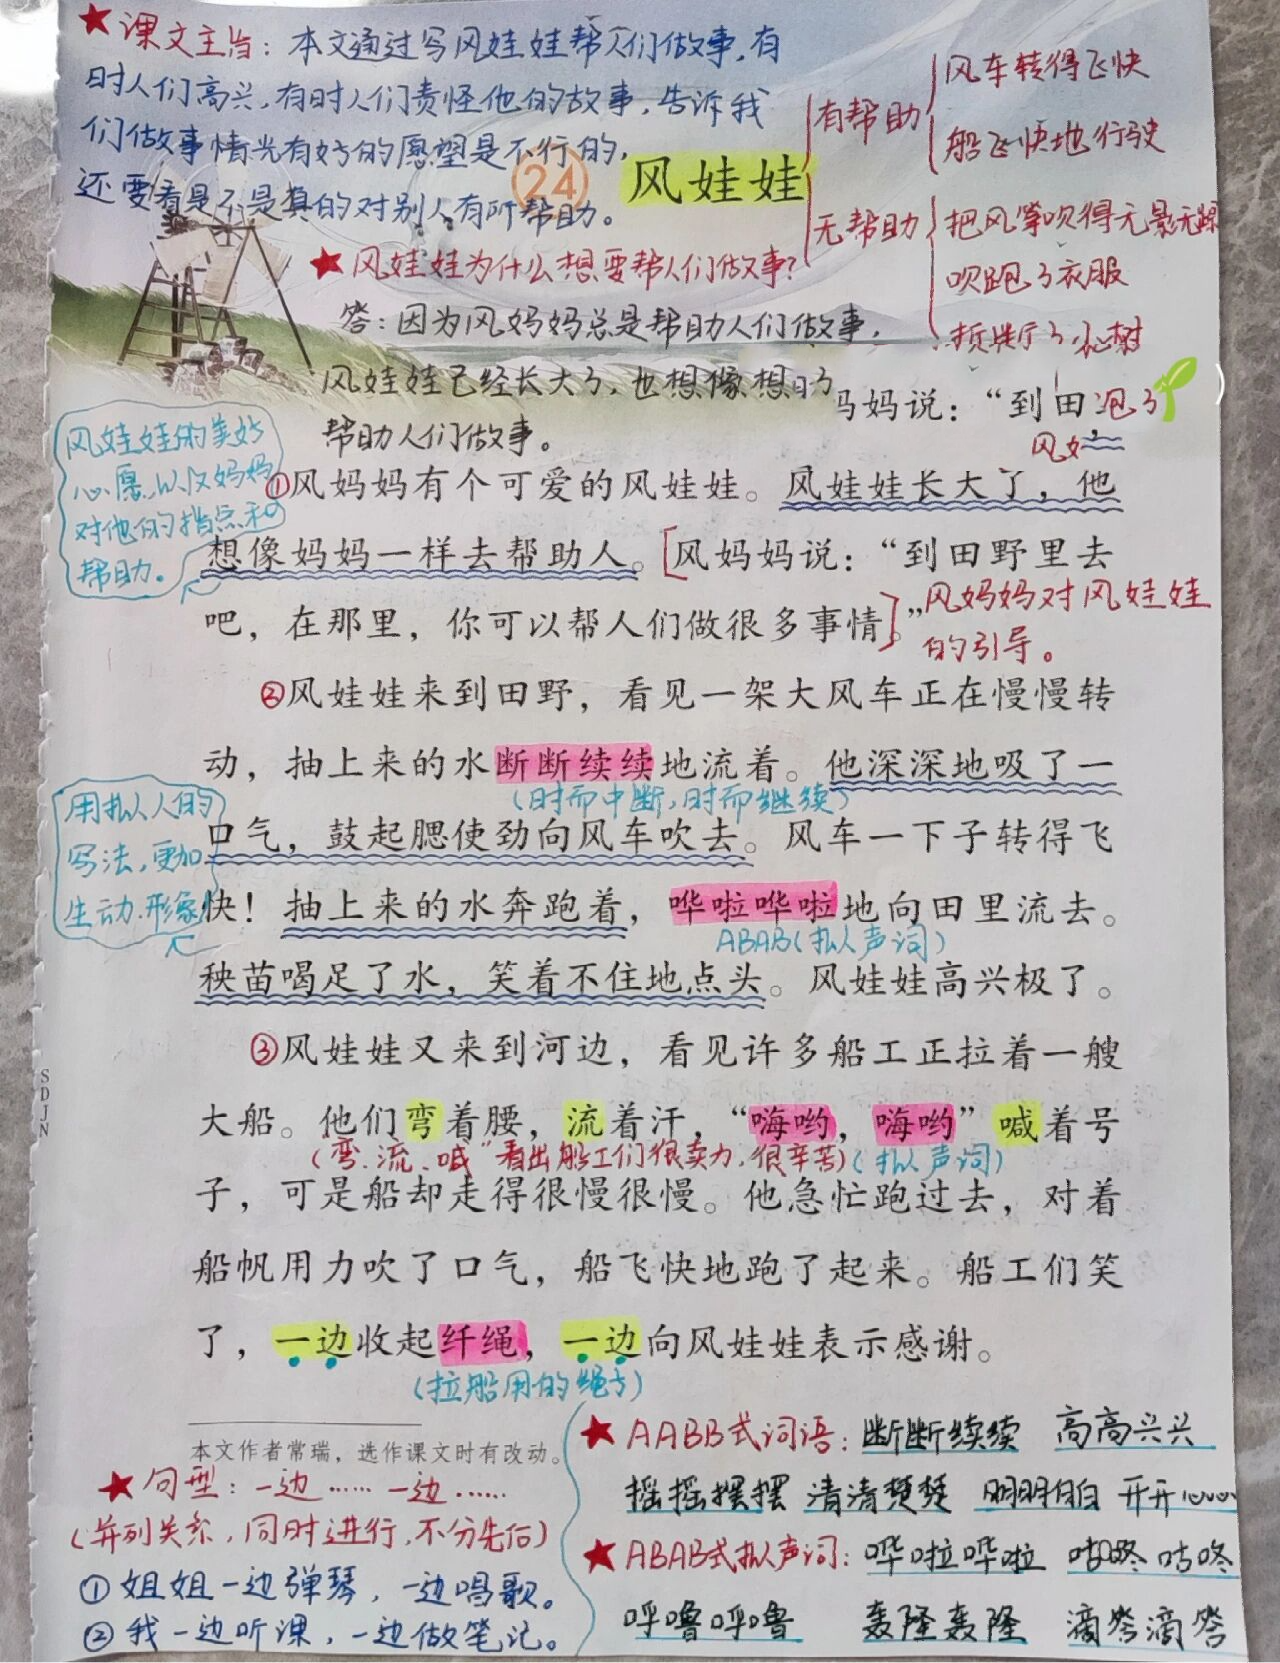 ★课文主旨：本文通过写风娃娃帮人们做事，有
时人们高兴，有时人们责怪他的故事，告诉我
们做事情光有好的愿望是不行的，
还要看是不是真的对别人有所帮助。
24 风娃娃
有帮助
风车转得飞快
船飞快地行驶
无帮助
把风筝吹得无影无踪
吹跑了衣服
★风娃娃为什么想要帮人们做事？
答：因为风妈妈总是帮助人们做事，
风娃娃已经长大了，也想像
帮助人们做事。
妈妈说：“到田
风娃娃的美好
心愿，以及妈妈
对他的指点和
帮助。
①风妈妈有个可爱的风娃娃。风娃娃长大了，他
想像妈妈一样去帮助人。[风妈妈说：“到田野里去
吧，在那里，你可以帮人们做很多事情。”]
风妈妈对风娃娃
的引导。
②风娃娃来到田野，看见一架大风车正在慢慢转
动，抽上来的水断断续续地流着。他深深地吸了一
（时而中断，时而继续）
口气，鼓起腮使劲向风车吹去。风车一下子转得飞
快！抽上来的水奔跑着，哗啦哗啦地向田里流去。
ABAB（拟声词）
用拟人的
写法，更加
生动、形象
秧苗喝足了水，笑着不住地点头。风娃娃高兴极了。
③风娃娃又来到河边，看见许多船工正拉着一艘
大船。他们弯着腰，流着汗，“嗨哟，嗨哟”喊着号
（弯、流、喊”看出船工们很卖力，很辛苦）（拟声词）
子，可是船却走得很慢很慢。他急忙跑过去，对着
船帆用力吹了口气，船飞快地跑了起来。船工们笑
了，一边收起纤绳，一边向风娃娃表示感谢。
（拉船用的绳子）
SDJN
本文作者常瑞，选作课文时有改动。
★句型：一边……一边……
（并列关系，同时进行，不分先后）
①姐姐一边弹琴，一边唱歌。
②我一边听课，一边做笔记。
★AABB式词语：断断续续 高高兴兴
摇摇摆摆 清清楚楚 明明白白 开开心心
★ABAB式拟声词：哗啦哗啦 咕咚咕咚
呼噜呼噜 轰隆轰隆 滴答滴答